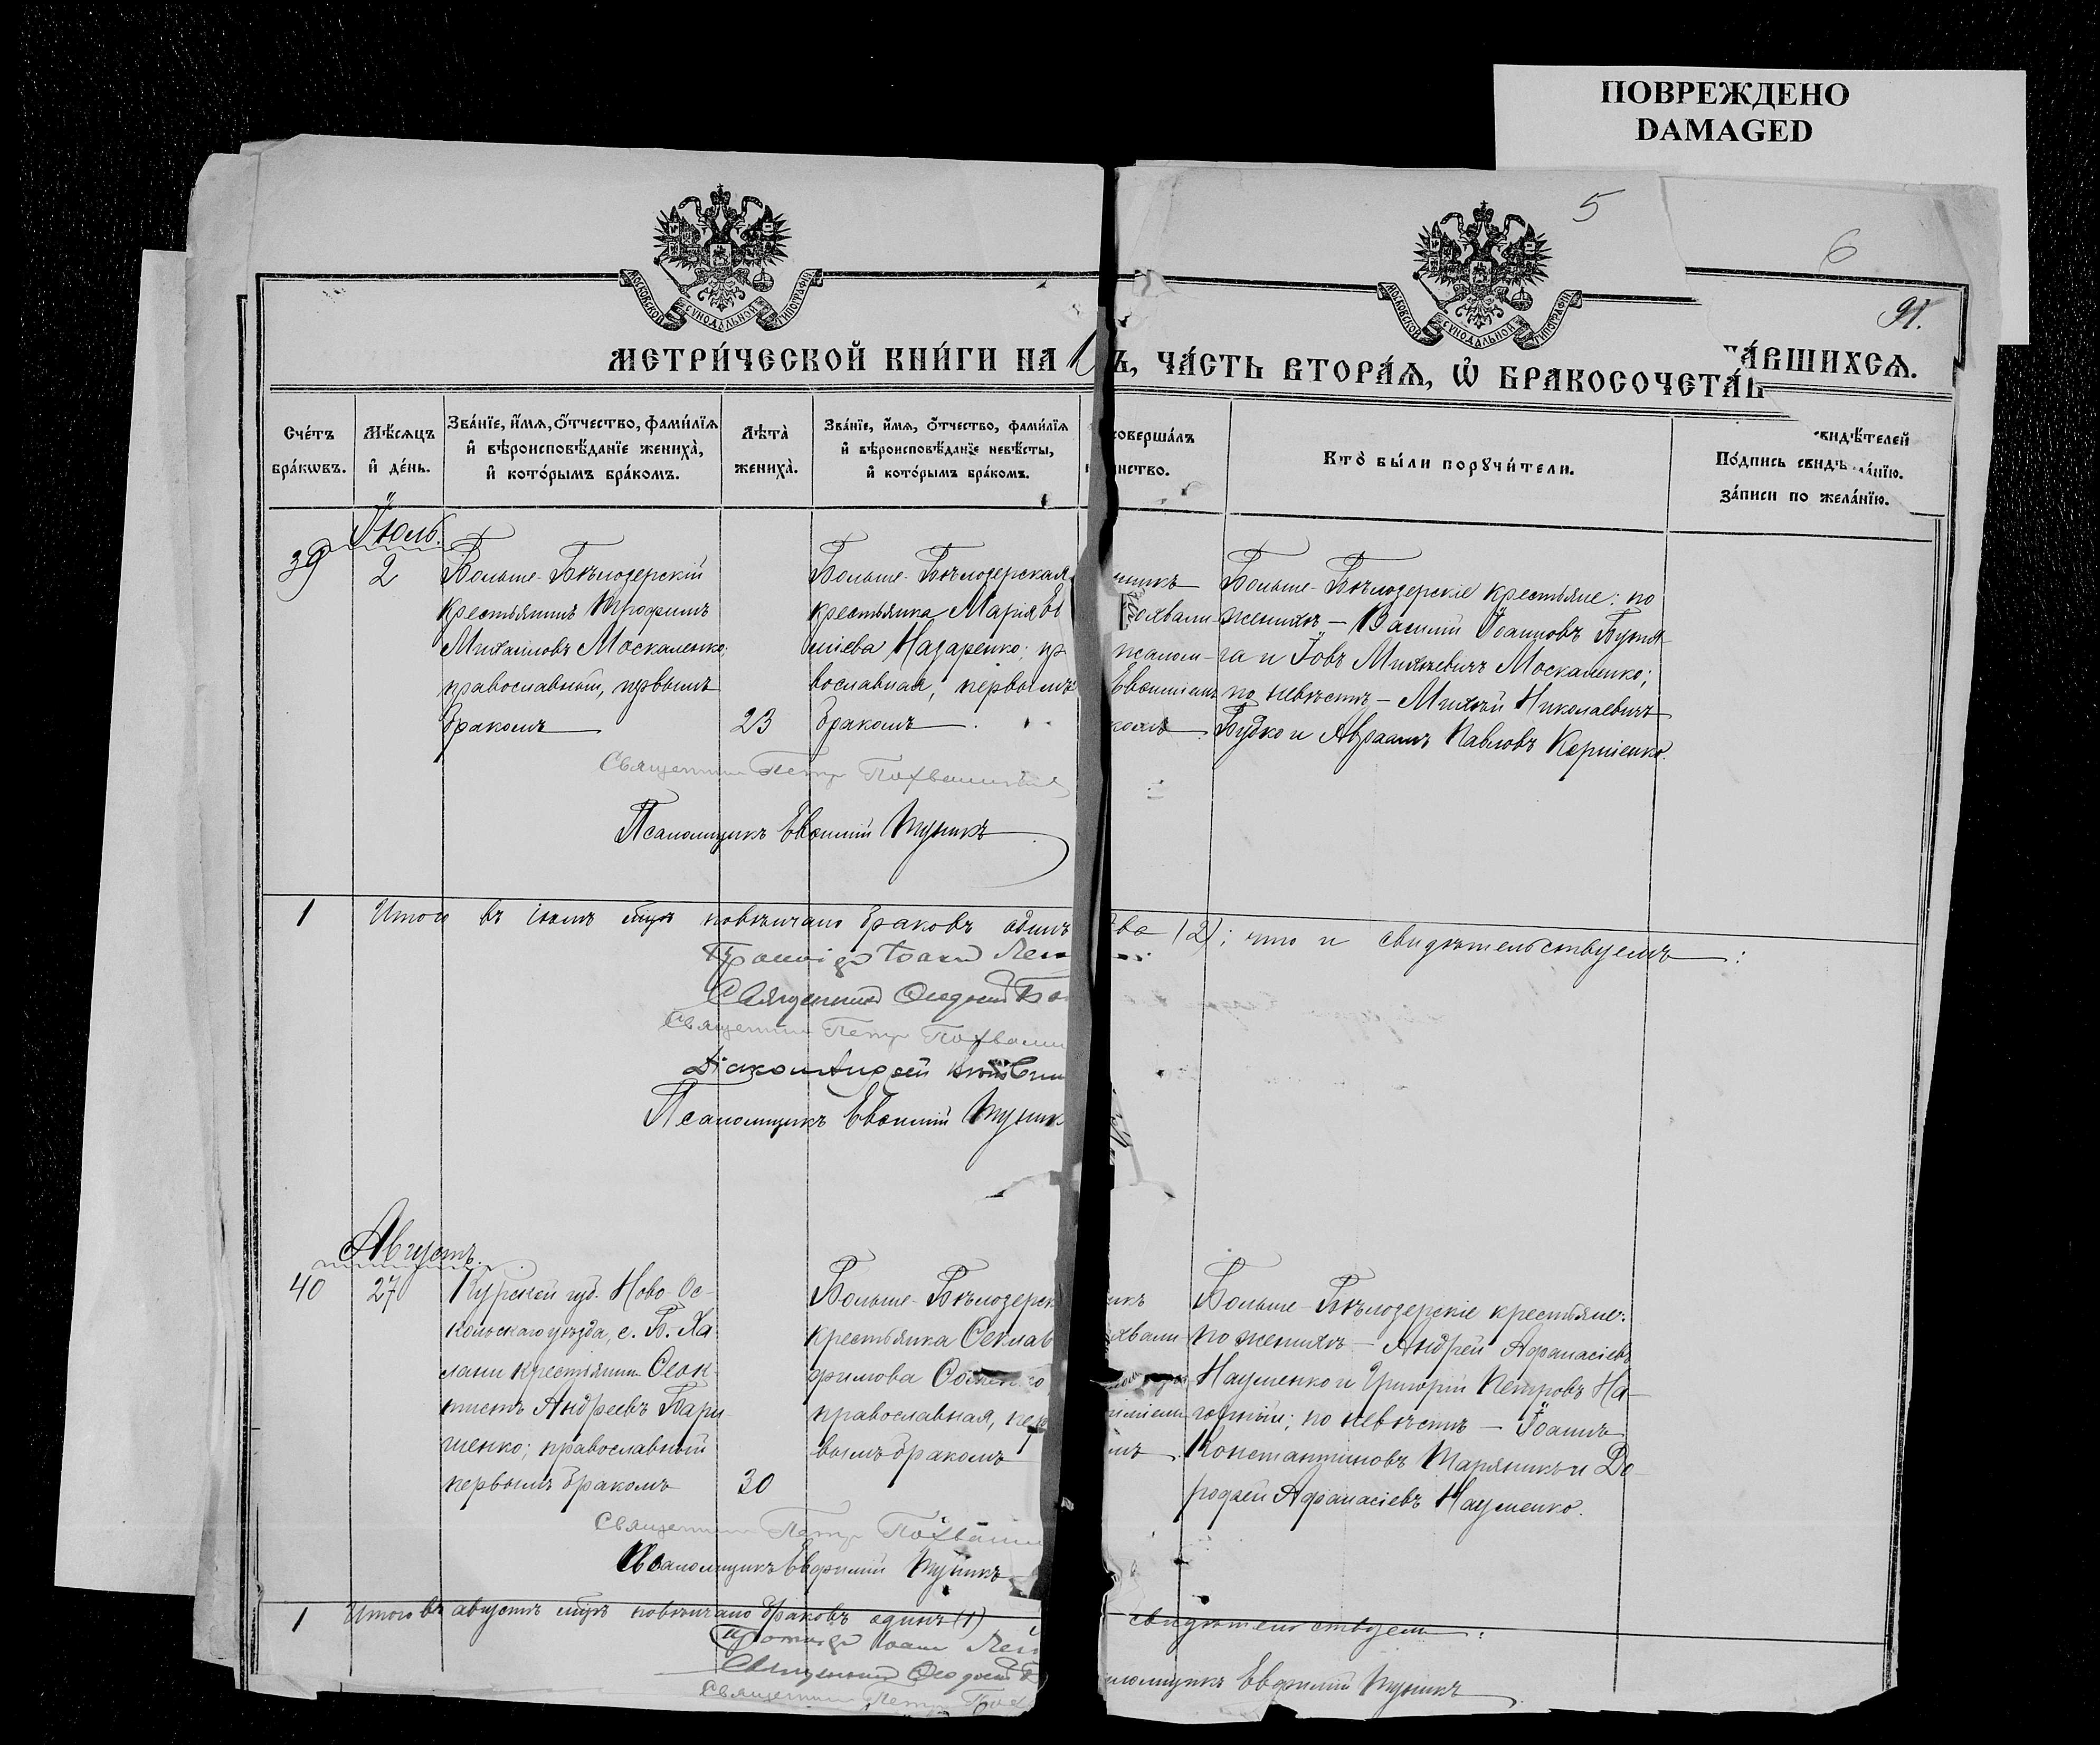 ПОВРЕЖДЕНО
DAMAGED
5
6
91.
МОСКОВСКОЙ СѴНОДАЛЬНОЙ ТИПОГРАФІИ
МОСКОВСКОЙ СѴНОДАЛЬНОЙ ТИПОГРАФІИ
МЕТРИ́ЧЕСКОЙ КНИ́ГИ НА 1
Ъ, ЧА́СТЬ ВТОРА́Я, Ѡ҆ БРАКОСОЧЕТА́В
ТА́ВШИХСѦ.
Сче́тъ бра́кѡвъ.
Мѣ́сѧцъ и҆ де́нь.
Зва́нїе, и҆́мѧ, ѻ҆́тчество, фами́лїѧ и҆ вѣроисповѣ́данїе жениха̀, и҆ кото́рымъ бра́комъ.
Лѣта̀ жениха̀.
Зва́нїе, и҆́мѧ, ѻ҆́тчество, фами́лїѧ и҆ вѣроисповѣ́данїе невѣ́сты, и҆ кото́рымъ бра́комъ.
соверша́лъ
инство.
Кто̀ бы́ли порꙋчи́тели.
видѣ́телей
По́дпись свидѣ
за́писи по жела́нїю.
Іюль.
39
2
Больше-Бѣлозерскій
крестьянинъ Трофимъ
Михаиловъ Москаленко;
православный, первымъ
бракомъ
23
Больше-Бѣлозерская
крестьянка Марія Ев
шіева Назаренко; пр
вославная, первымъ
бракомъ.
нникъ
охвали
псалом-
Евѳиміемъ
комъ
Больше-Бѣлозерскіе крестьяне: по
женихѣ — Василій Іоанновъ
га и Іовъ Михѣевичъ Москаленко;
по невѣстѣ — Михѣй Николаевичъ
Будко и Авраамъ Павловъ Корніенко.
Священникъ Петръ
Псаломщикъ Евѳимій Тупикъ
1
Итого въ іюлѣ мцѣ повѣнчано браковъ одинъ
два (2); что и свидѣтельствуемъ:
Іоаннъ
Священникъ Ѳеодосій
Священникъ Петръ
Діаконъ Андрей
Псаломщикъ Евѳимій Тупик
Августъ.
40
27
Курской губ. Ново Ос-
кольскаго уѣзда, с. Б.-Ха
лани крестьянинъ Ѳеок-
тистъ Андреевъ Бары-
шенко; православный
первымъ бракомъ
30
Больше-Бѣлозерск
крестьянка
фимова
православная, пер
вымъ бракомъ
икъ
хвали
мъ
Больше-Бѣлозерскіе крестьяне:
по женихѣ — Андрей Аѳанасіевъ
Науменко и Григорій Петровъ На-
горный; по невѣстѣ — Іоаннъ
Константиновъ Таряникъ и До-
роѳей Аѳанасіевъ Науменко.
Священникъ Петръ
Псаломщикъ Евфимій Тупикъ
1
Итого въ августѣ мцѣ повѣнчано браковъ одинъ (1)
свидѣтельствуемъ:
Іоаннъ
Священникъ Ѳеодосій
Священникъ Петръ
ломщикъ Евфимій Тупикъ